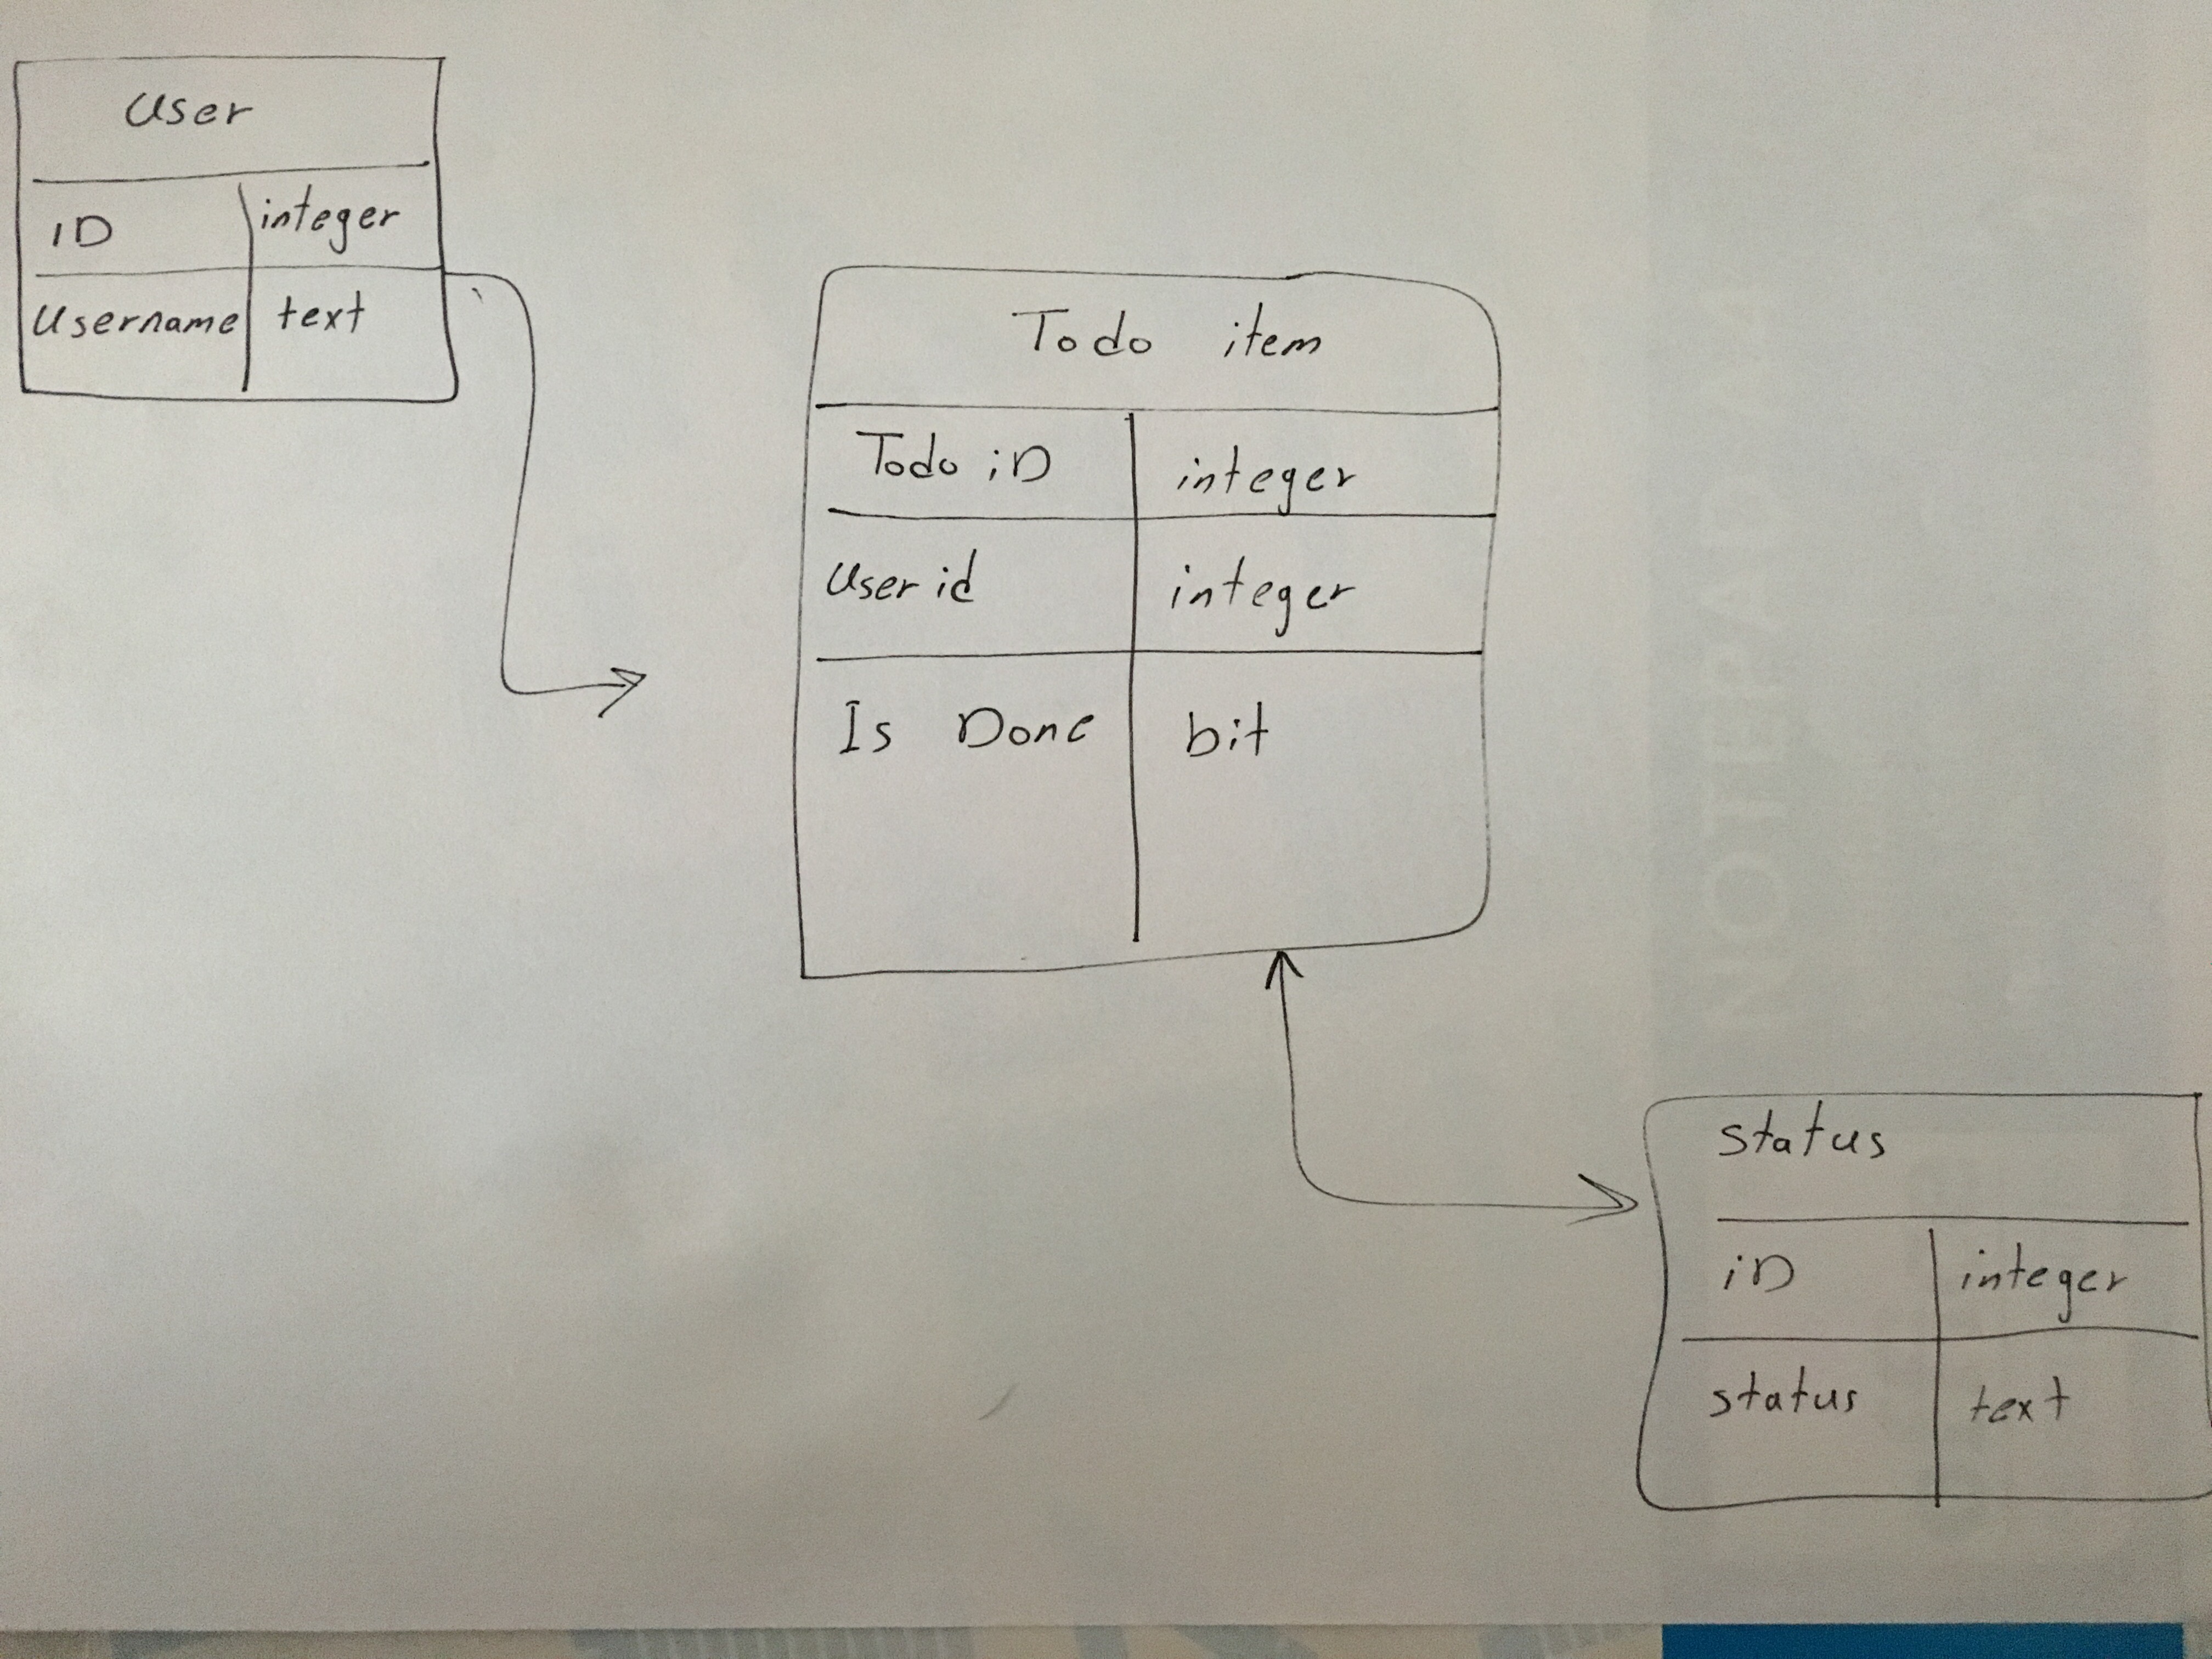 User
iD
integer
Username
text
Todo item
Todo iD
integer
User id
integer
Is Done
bit
status
iD
integer
status
text
NOTEPAD